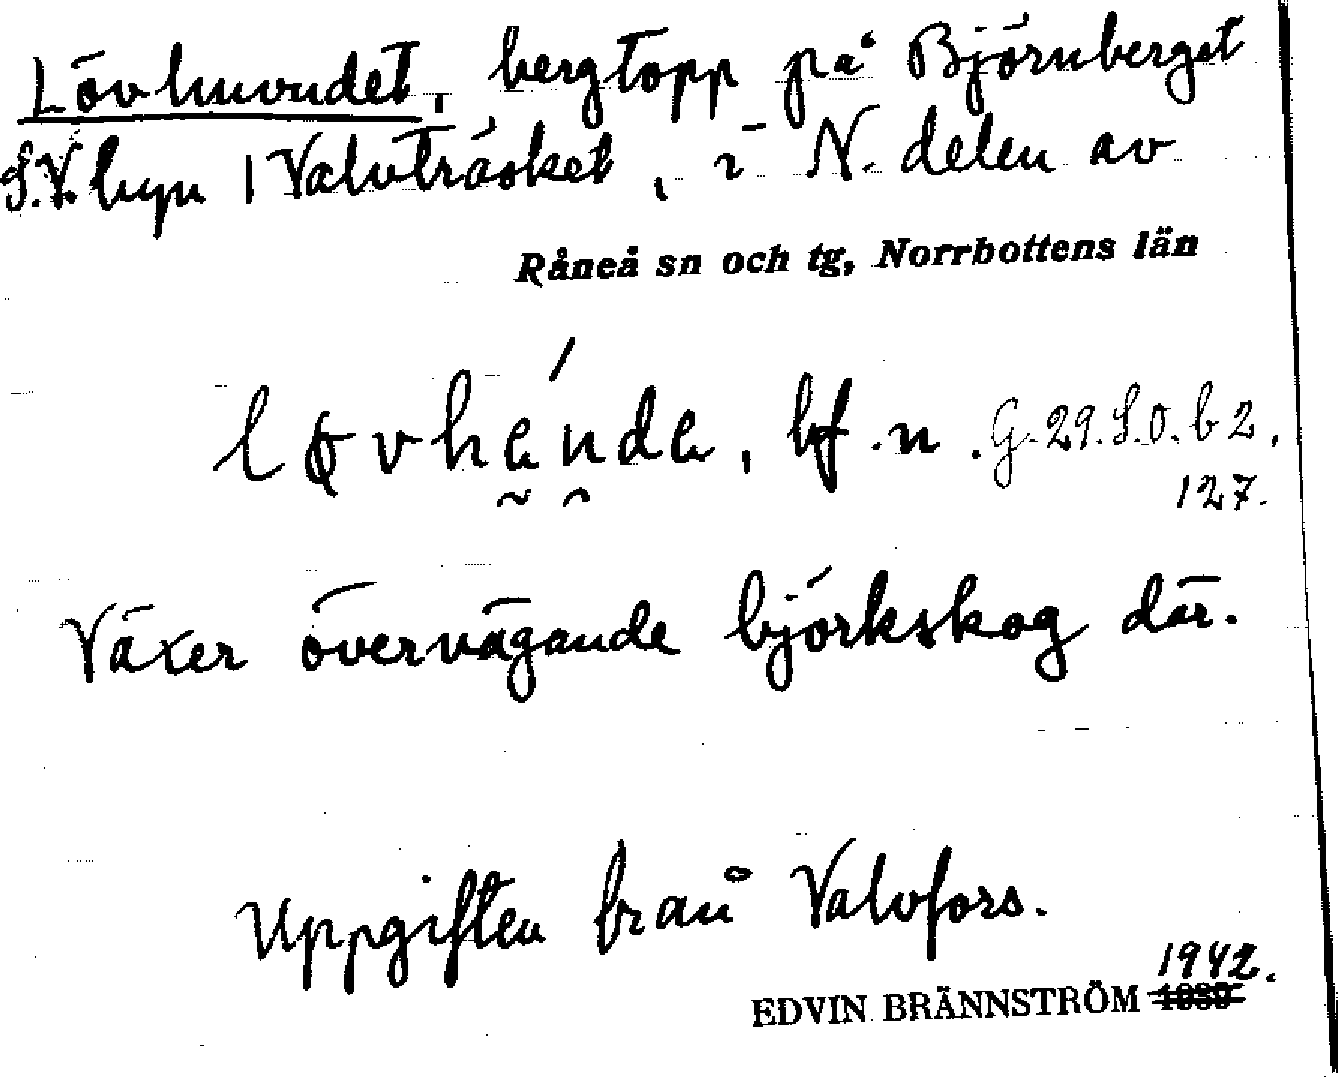 Lövhuvudet, bergtopp på Björnberget
S.V. hyn i Valvträsket, i N. delen av
Råneå sn och tg, Norrbottens län
løvhända, bf. n. G. 29. S. O. b 2,
127.
Växer övervägande björkskog där.
Uppgiften från Valvfors.
1942.
EDVIN BRÄNNSTRÖM 1939